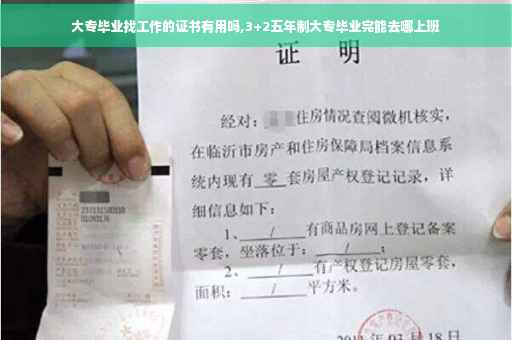 大专毕业找工作的证书有用吗,3+2五年制大专毕业完能去哪上班
证 明
经对:住房情况查阅微机核实,
在临沂市房产和住房保障局档案信息系
统内现有 零 套房屋产权登记记录,详
细信息如下:
1、 / 有商品房网上登记备案
零套,坐落位于: / ;
2、 / 有产权登记房屋零套,
面积: / 平方米。